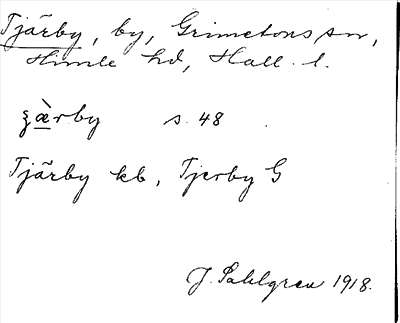 Tjärby, by, Grimetons sn,
Himle hd, Hall. l.
ʒæ̀rby s. 48
Tjärby kb, Tjerby G
J. Sahlgren 1918.